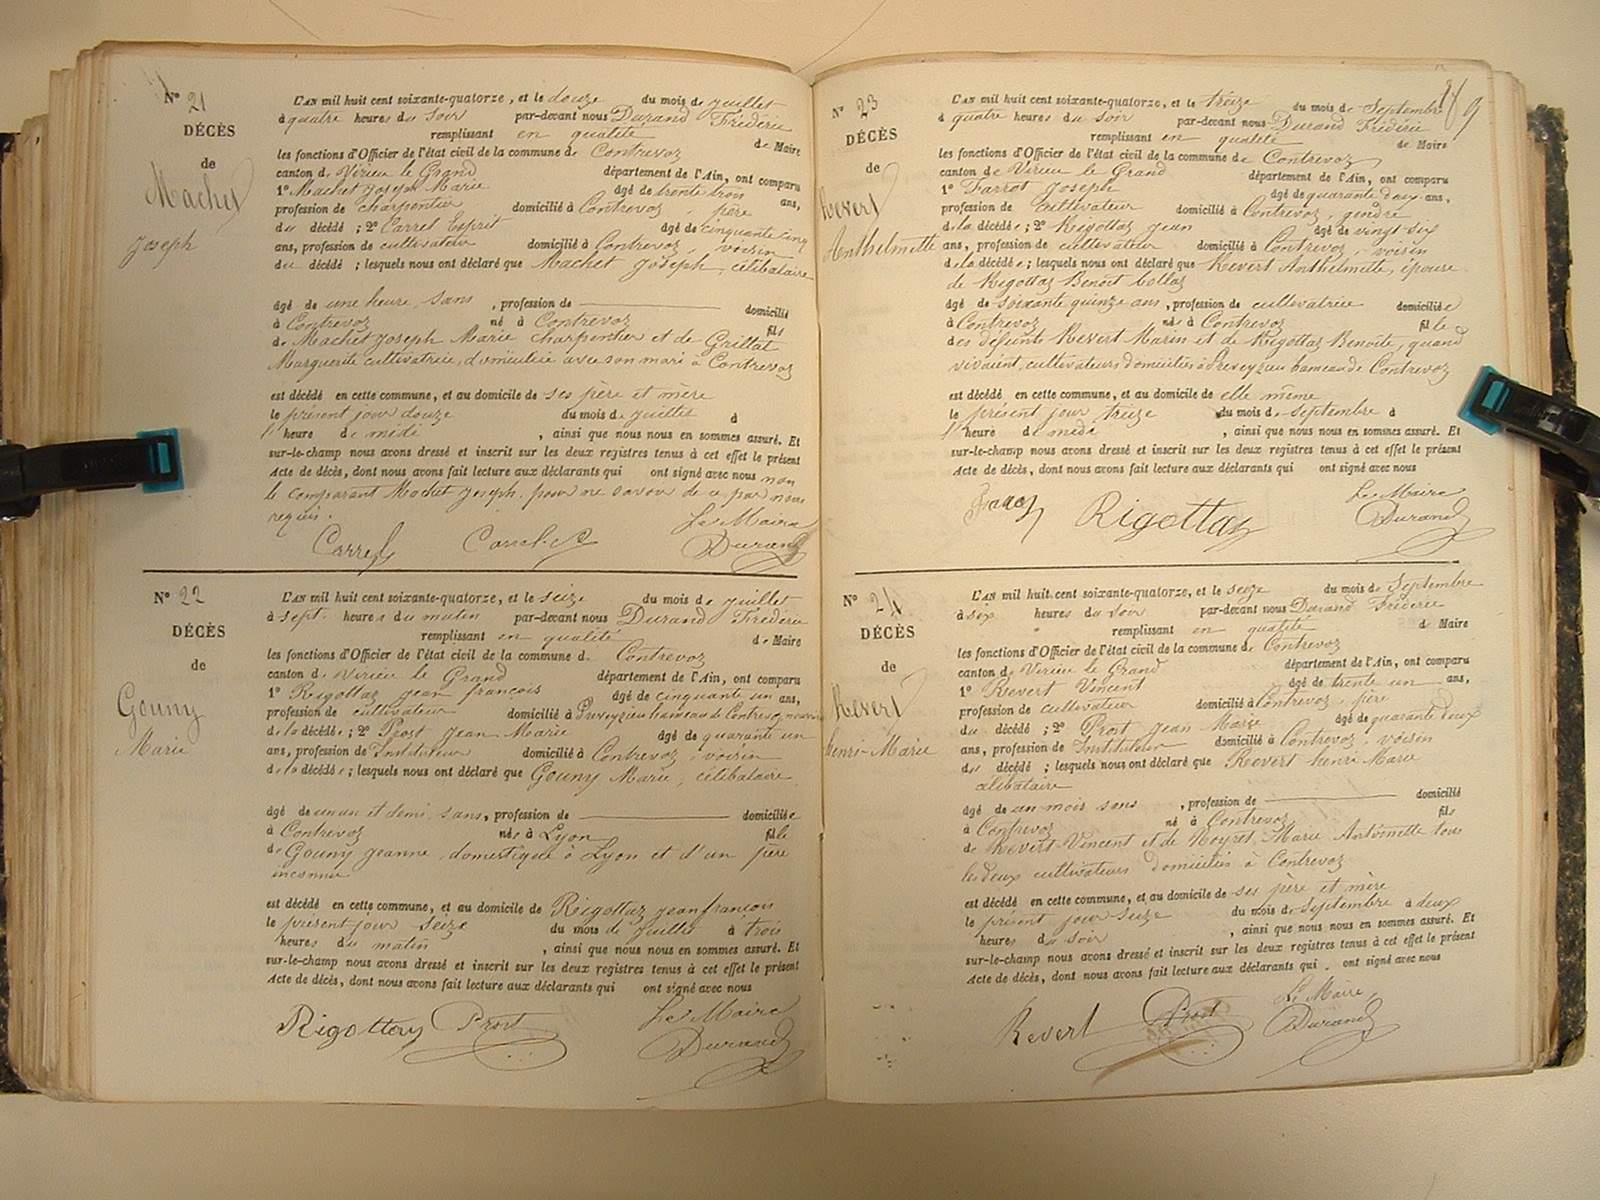 N° 21
DÉCÈS
de
Machet
Joseph
L'AN mil huit cent soixante-quatorze, et le douze du mois de juillet
à quatre heures du soir par-devant nous Durand Frédéric
remplissant en qualité de Maire
les fonctions d'Officier de l'état civil de la commune de Contrevoz
canton de Virieu le Grand département de l'Ain, ont comparu
1° Machet Joseph Marie âgé de trente trois ans,
profession de charpentier domicilié à Contrevoz, père
du décédé ; 2° Carrel Esprit âgé de cinquante cinq
ans, profession de cultivateur domicilié à Contrevoz, voisin
du décédé ; lesquels nous ont déclaré que Machet Joseph, célibataire
âgé de une heure, sans , profession de domicilié
à Contrevoz né à Contrevoz fils
de Machet Joseph Marie charpentier et de Grillat
Marguerite cultivatrice, domiciliée avec son mari à Contrevoz
est décédé en cette commune, et au domicile de ses père et mère
le présent jour douze du mois de juillet à
l'heure de midi , ainsi que nous nous en sommes assuré. Et
sur-le-champ nous avons dressé et inscrit sur les deux registres tenus à cet effet le présent
Acte de décès, dont nous avons fait lecture aux déclarants qui ont signé avec nous non
le comparant Machet Joseph, pour ne savoir de ce par nous
requis.
Le Maire
Carrel Carrel Durand
N° 22
DÉCÈS
de
Gouny
Marie
L'AN mil huit cent soixante-quatorze, et le seize du mois de juillet
à sept heures du matin par-devant nous Durand Frédéric
remplissant en qualité de Maire
les fonctions d'Officier de l'état civil de la commune d. Contrevoz
canton de Virieu le Grand département de l'Ain, ont comparu
1° Rigottaz jean françois âgé de cinquante un ans,
profession de cultivateur domicilié à Preveyzieu hameau de Contrevoz
de la décédée ; 2° Prost Jean Marie âgé de quarante un
ans, profession de Instituteur domicilié à Contrevoz, voisin
de la décédée ; lesquels nous ont déclaré que Gouny Marie, célibataire
âgé de un an et demi, sans, profession de domiciliée
à Contrevoz née à Lyon fille
de Gouny Jeanne, domestique à Lyon et d'un père
inconnu
est décédé en cette commune, et au domicile de Rigottaz jean françois
le présent jour seize du mois de juillet à trois
heures du matin , ainsi que nous nous en sommes assuré. Et
sur-le-champ nous avons dressé et inscrit sur les deux registres tenus à cet effet le présent
Acte de décès, dont nous avons fait lecture aux déclarants qui ont signé avec nous
Le Maire
Rigottaz Prost Durand
N° 23
DÉCÈS
de
Revert
Anthelmette
L'AN mil huit cent soixante-quatorze, et le treize du mois de Septembre
à quatre heures du soir par-devant nous Durand Frédéric
remplissant en qualité de Maire
les fonctions d'Officier de l'état civil de la commune de Contrevoz
canton de Virieu le Grand département de l'Ain, ont comparu
1° Joseph âgé de quarante deux ans,
profession de cultivateur domicilié à Contrevoz, gendre
de la décédée ; 2° Rigottaz Jean âgé de vingt six
ans, profession de cultivateur domicilié à Contrevoz, voisin
de la décédée ; lesquels nous ont déclaré que Revert Anthelmette, épouse
de Rigottaz Benoît
âgé de soixante quinze ans, profession de cultivatrice domiciliée
à Contrevoz née à Contrevoz fille
des défunts Revert Marin et de Rigottaz Benoîte, quand
vivaient cultivateurs domiciliés à Preveyzieu hameau de Contrevoz
est décédé en cette commune, et au domicile de elle même
le présent jour treize du mois de septembre à
l'heure de midi , ainsi que nous nous en sommes assuré. Et
sur-le-champ nous avons dressé et inscrit sur les deux registres tenus à cet effet le présent
Acte de décès, dont nous avons fait lecture aux déclarants qui ont signé avec nous
Le Maire
Rigottaz Durand
N° 24
DÉCÈS
de
Revert
henri-Marie
L'AN mil huit cent soixante-quatorze, et le seize du mois de Septembre
à six heures du soir par-devant nous Durand Frédéric
remplissant en qualité de Maire
les fonctions d'Officier de l'état civil de la commune de Contrevoz
canton de Virieu le Grand département de l'Ain, ont comparu
1° Revert Vincent âgé de trente un ans,
profession de cultivateur domicilié à Contrevoz, père
du décédé ; 2° Prost Jean Marie âgé de quarante deux
ans, profession de Instituteur domicilié à Contrevoz, voisin
du décédé ; lesquels nous ont déclaré que Revert henri Marie
célibataire
âgé de un mois sans , profession de domicilié
à Contrevoz né à Contrevoz fils
de Revert Vincent et de Noyret Marie Antoinette tous
les deux cultivateurs domiciliés à Contrevoz
est décédé en cette commune, et au domicile de ses père et mère
le présent jour seize du mois de septembre à deux
heures du soir , ainsi que nous nous en sommes assuré. Et
sur-le-champ nous avons dressé et inscrit sur les deux registres tenus à cet effet le présent
Acte de décès, dont nous avons fait lecture aux déclarants qui ont signé avec nous
Le Maire,
Revert Prost Durand